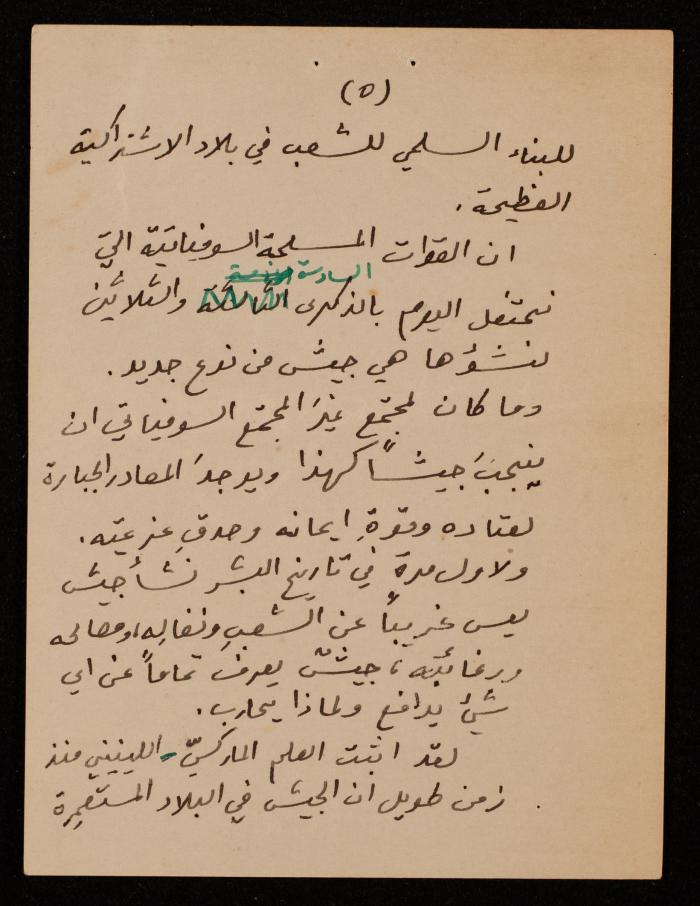 (٥)
للبناء السلمي للشعب في بلاد الاشتراكية
العظيمة .
ان القوات المسلحة السوفياتية التي
السادسة
تحتفل اليوم بالذكرى الثالثة والثلاثين
لنشؤها هي جيش من نوع جديد .
وما كان لمجتمع غيرَ المجتمع السوفياتي ان
ينجبَ جيشاً كهذا ويوجدَ المصادر الجبارة
لعتاده وقوةِ ايمانه وصدقِ عزيمته .
ولاول مرة في تاريخ البشر نشأ جيش
ليس غريباً عن الشعبِ ونضالِه، ومصالحه
ورغائبه ، جيشٌ يعرف تماماً عن اي
شيْ يدافع ولماذا يحارب .
لقد اثبت العلم الماركسيّ - اللينيني منذ
زمن طويل ان الجيش في البلاد المستعمِرة